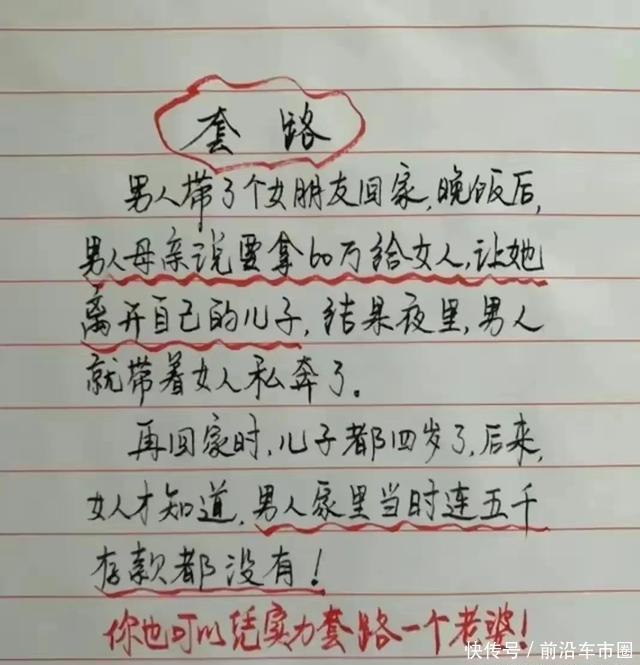 套路
男人带了个女朋友回家,晚饭后,
男人母亲说要拿60万给女人,让她
离开自己的儿子,结果夜里,男人
就带着女人私奔了。
再回家时,儿子都四岁了,后来,
女人才知道,男人家里当时连五千
存款都没有!
你也可以凭实力套路一个老婆!
快传号/前沿车市圈